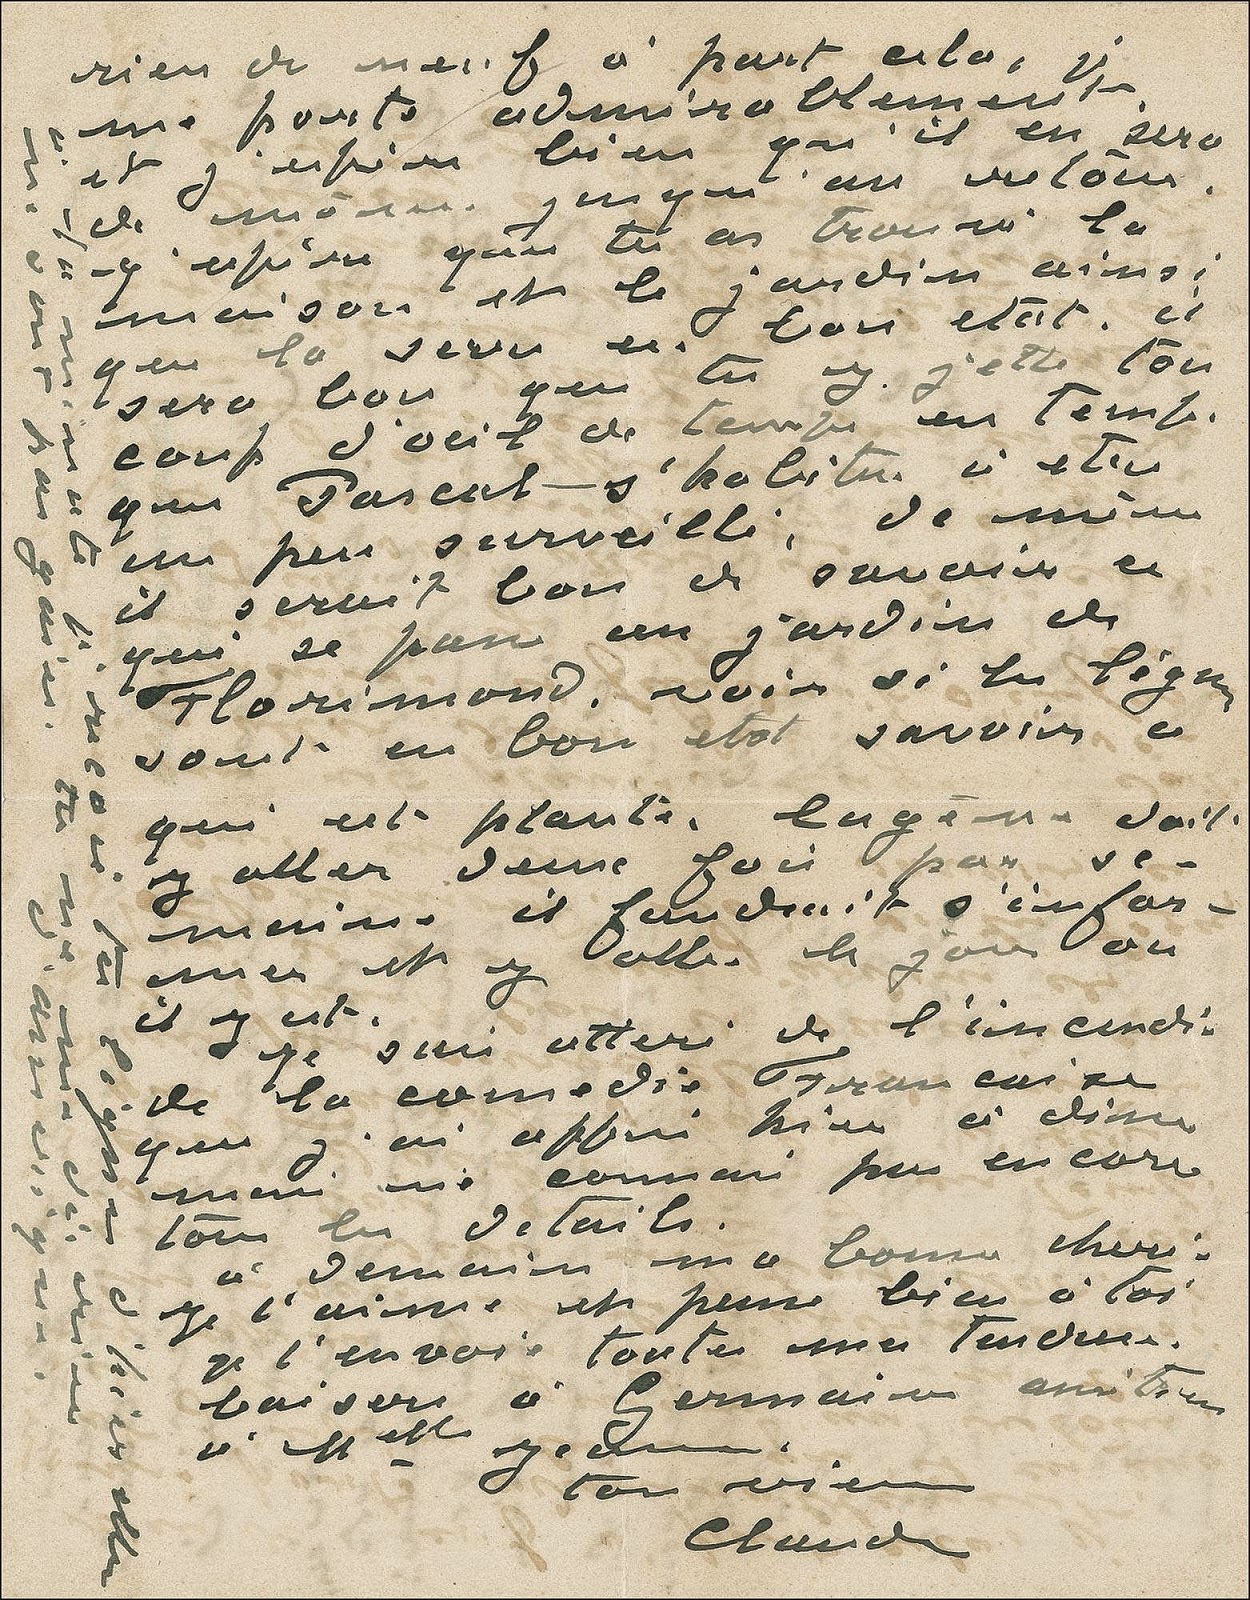 rien de neuf à part cela, je
me porte admirablement
et j'espère bien qu'il en sera
de même jusqu'au retour.
j'espère que tu as trouvé la
maison et le jardin ainsi
que la serre en bon état. il
sera bon que tu y jette ton
coup d'oeil de temps en temps.
que Pascal s'habitue à être
un peu surveillé, de même
il serait bon de savoir ce
qui se passe au jardin de
Florimond. voir si les légumes
sont en bon etat savoir ce
qui est planté. Eugène doit
y aller deux fois par se-
maine il faudrait s'infor-
mer et y aller le jour ou
il y est.
je suis atteré de l'incendie
de la comedie Francaise
que j'ai appri hier à diner
mais ne connais pas encore
tous les details.
à demain ma bonne cherie
je t'aime et pense bien à toi
je t'envoie toute ma tendresse.
baisers à Germaine amities
à Melle Jeanne.
ton vieux
Claude
minuit je recois tes tu ne